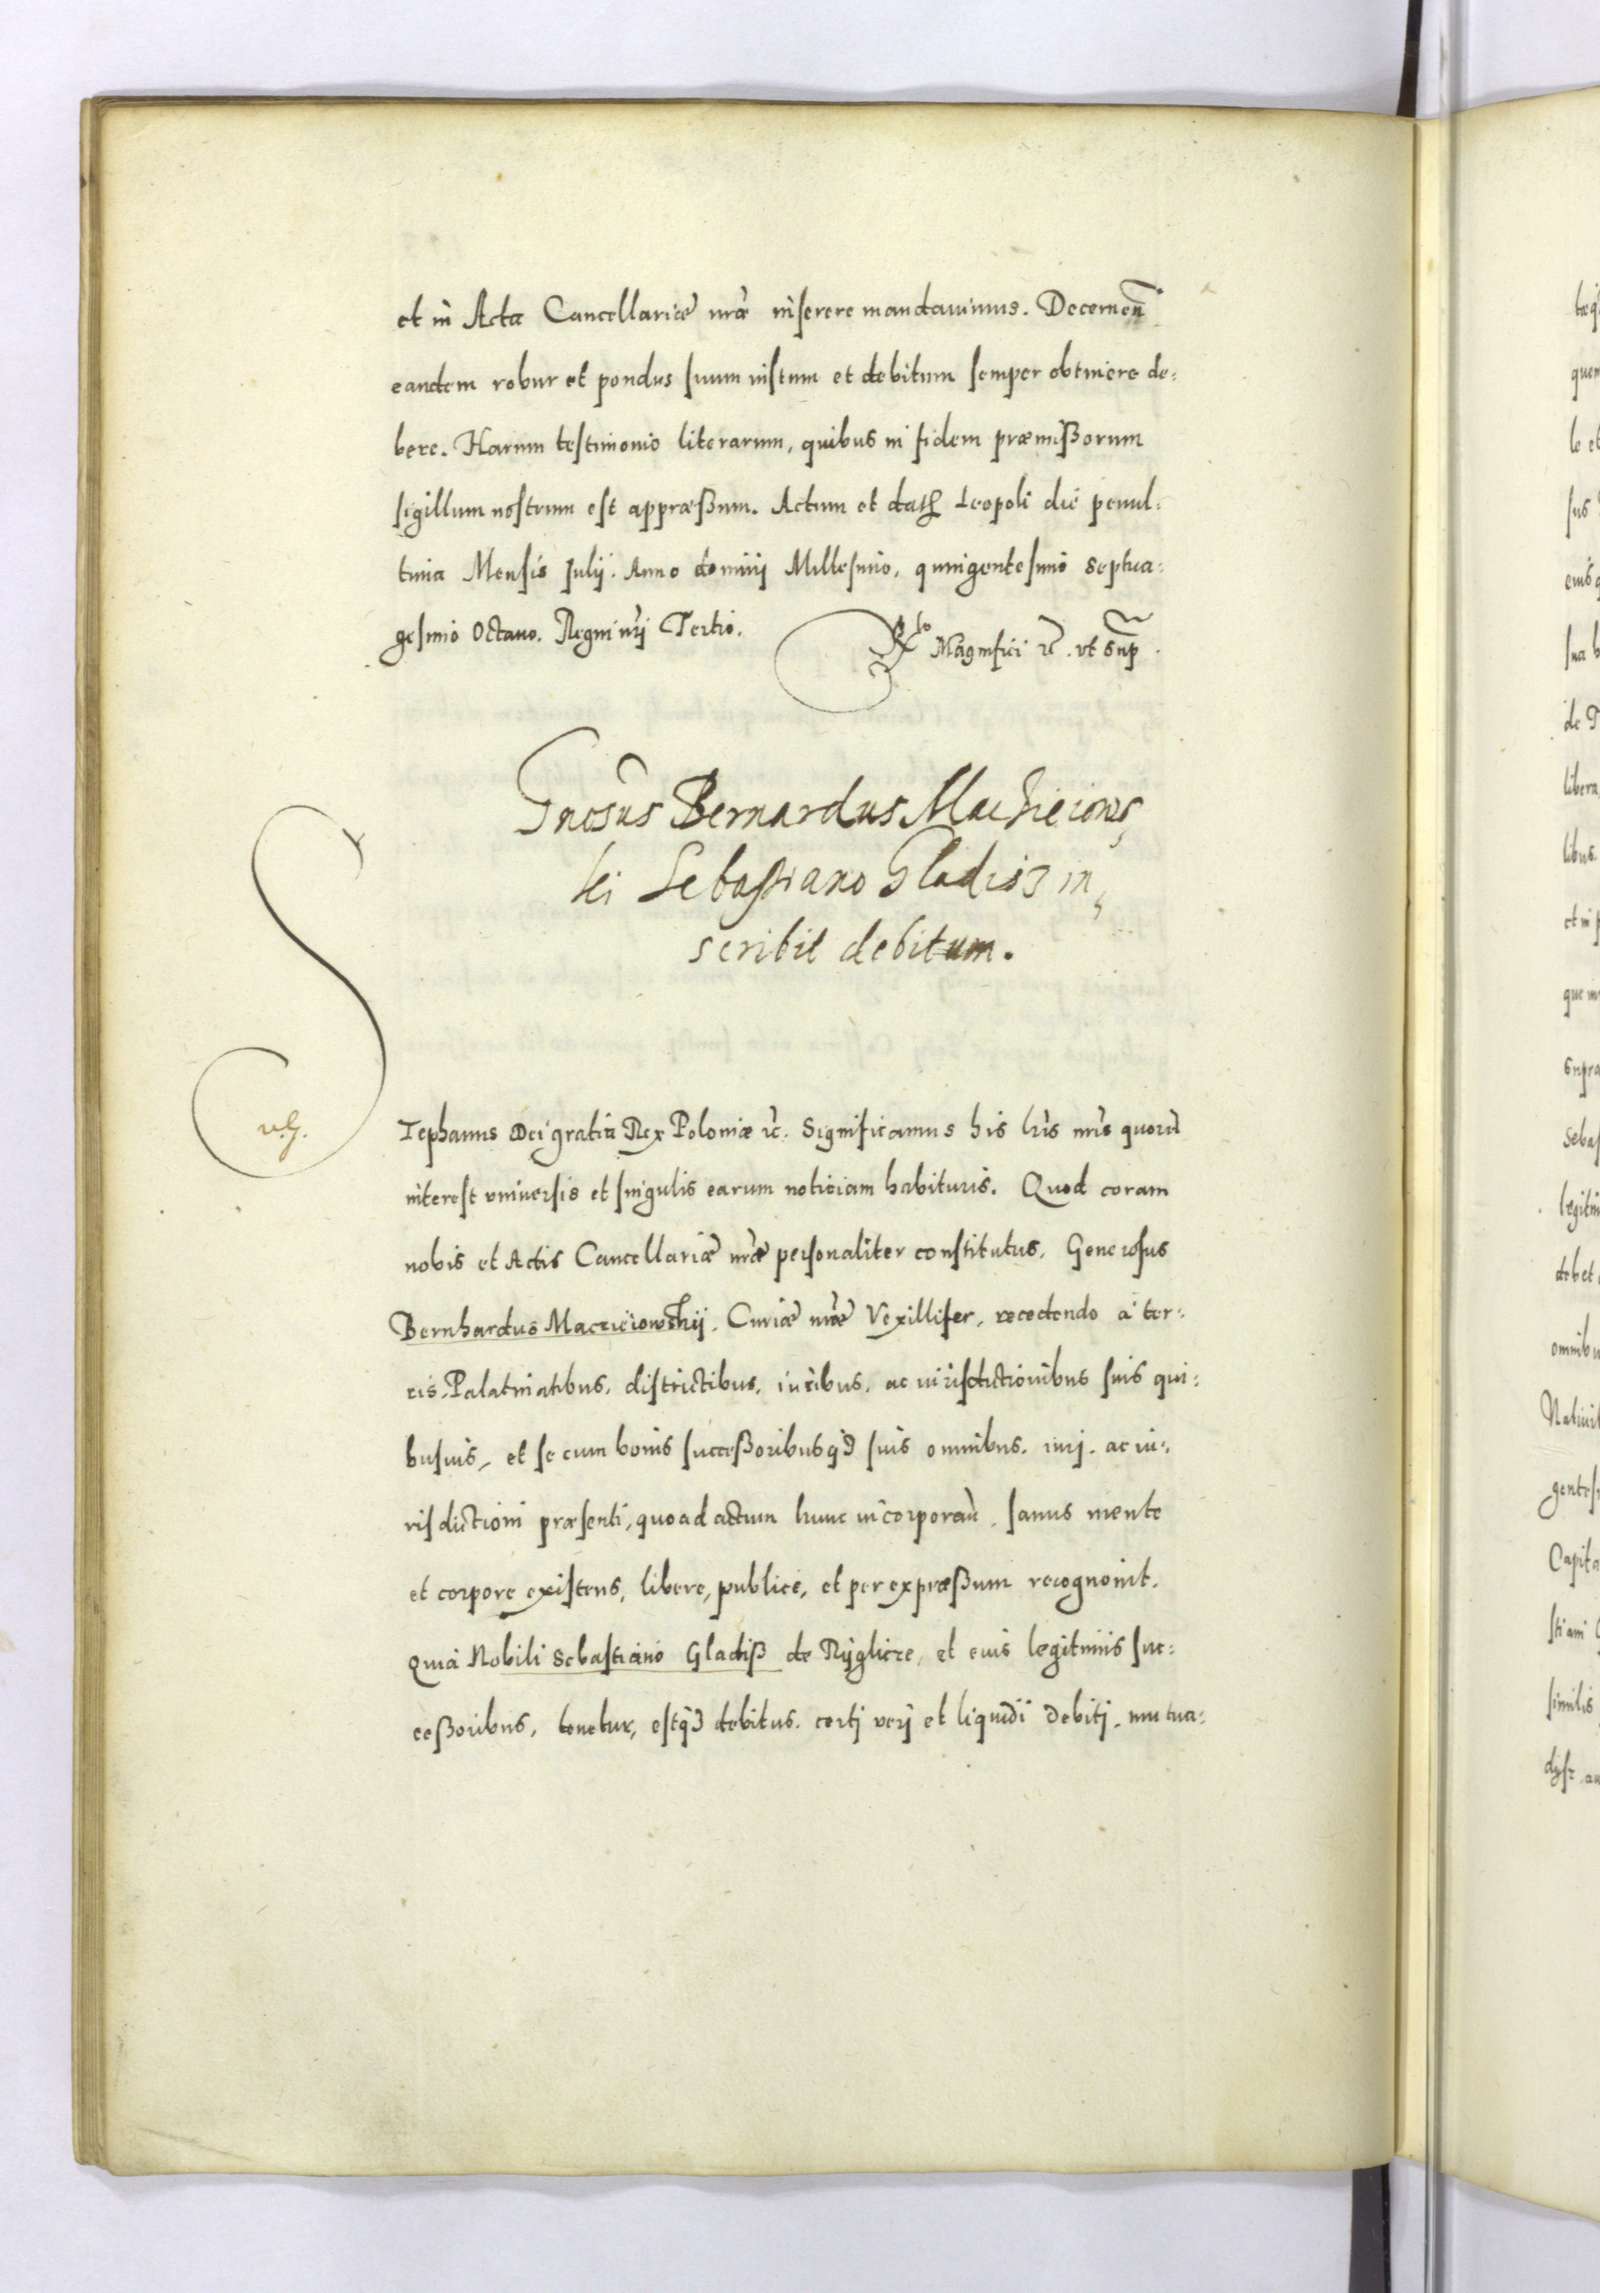 et in Acta Cancellariæ nr̃æ inserere mandauimus. Decernen̄
eandem robur et pondus suum iustum et debitum semper obtinere de:
bere. Harum testimonio literarum, quibus in fidem præmißorum
sigillum nostrum est appræßum. Actum et dat̃ Leopoli die penul:
tima Mensis Julij. Anno dominj Millesimo, quingentesimo septua:
gesimo Octauo. Regni nr̃j Tertio.
Rlo Magnifici ꝛc̃. vt sup̃.
Gnosus Bernardus Machieiows,
ki Sebastiano Gladisz in,
scribit debitum.
STephanus Dei gratia Rex Poloniæ ꝛc̃. Significamus his lr̃is nr̃is quorū
interest vniuersis et singulis earum noticiam habituris. Quod coram
nobis et Actis Cancellariæ nr̃æ personaliter constitutus, Generosus
Bernhardus Maczieiowskij. Curiæ nr̃æ Vexillifer, recedendo a ter:
ris, Palatinatibus, districtibus, iuribus, ac iurisdictionibus suis qui:
busuis, et se cum bonis succeßoribusq̃ suis omnibus. iurj. ac iu:
risdictioni præsenti, quoad actum hunc incorporan̄, sanus mente
et corpore existens, libere, publice, et per expræßum recognouit.
Quia Nobili Sebastiano Gladiß de Rÿglicze, et eius legitimis suc:
ceßoribus, tenetur, estq̃ debitus. certj verj et liquidi debitj, mutua: